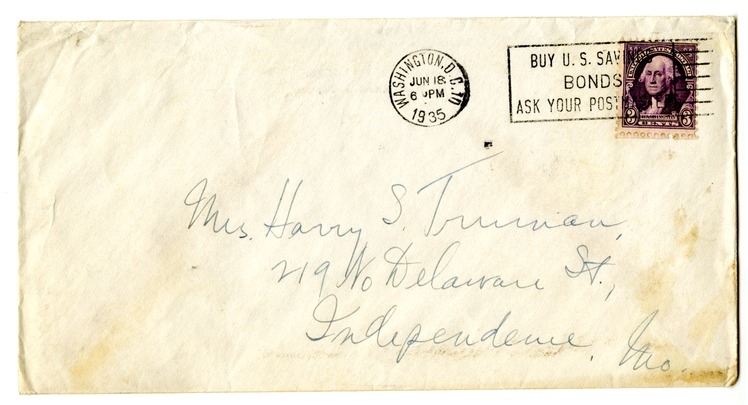 WASHINGTON, D.C. 10
JUN 18
6 PM
1935
BUY U.S. SAVINGS
BONDS
ASK YOUR POST
3 CENTS 3
Mrs. Harry S. Truman,
219 No Delaware St.,
Independence, Mo.